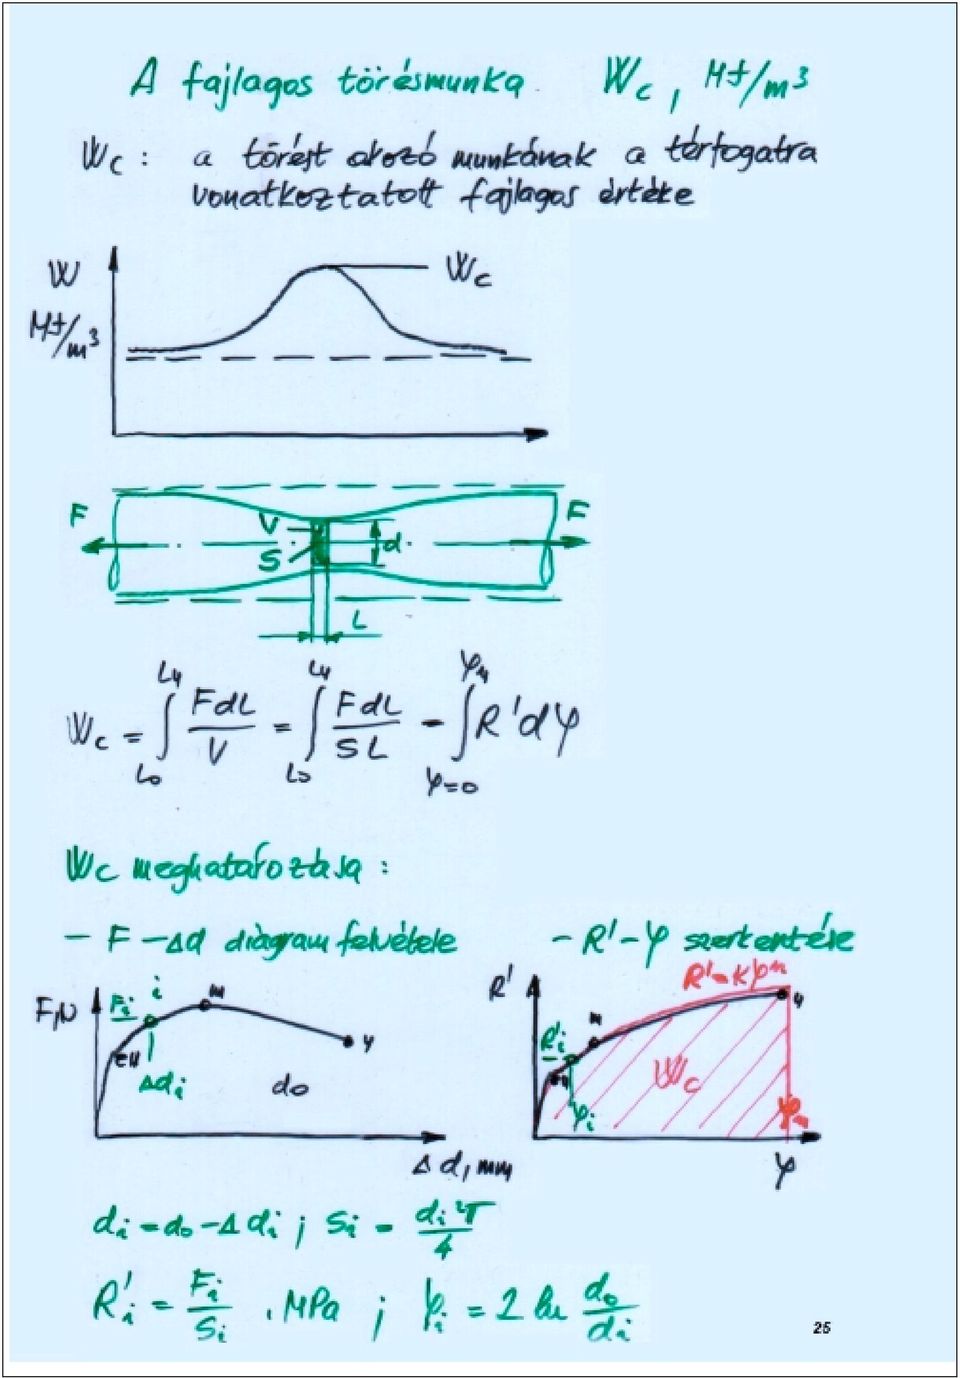 A fajlagos törésmunka Wc, MJ/m³
Wc: a törést okozó munkának a térfogatra
vonatkoztatott fajlagos értéke
W
MJ/m³
Wc
F
V
S
d
F
L
Wc = ∫ L₀ Lu FdL/V = ∫ L₀ Lu FdL/SL = ∫ φ=0 φu R'dφ
Wc meghatározása:
- F - Δd diagram felvétele
- R' - φ szerkesztése
F, N
Fi
i
m
u
eH
Δdi
d₀
Δd, mm
R'
R'=kφⁿ
u
m
R'i
eH
Wc
φi
φu
φ
di = d₀ - Δdi ; Si = di²π/4
R'i = Fi/Si , MPa ; φi = 2 ln d₀/di
25